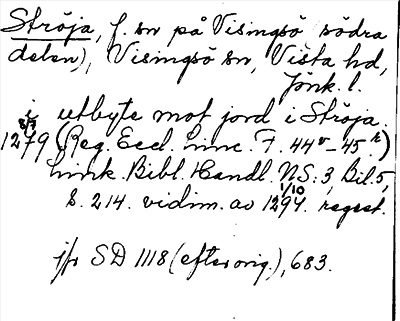 Ströja, f. sn på Visingsö södra
delen), Visingsö sn, Vista hd,
Jönk. l.
i utbyte mot jord i Ströja.
1279 8/3 (Reg. Eccl. Linc. F. 44v-45r)
Link. Bibl. Handl. N.S: 3, Bil. 5,
s. 214. vidim. av 1294 1/10 regest.
jfr SD 1118 (efter orig.), 683.